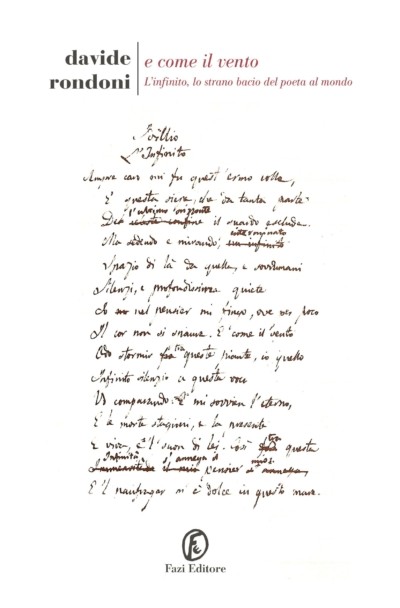 davide rondoni
e come il vento
L'infinito, lo strano bacio del poeta al mondo
Idillio
L'Infinito
Sempre caro mi fu quest'ermo colle,
E questa siepe, che da tanta parte
l'ultimo orizzonte
De il guardo esclude.
Ma sedendo e mirando,
Spazio di là da quella, e sovrumani
Silenzi, e profondissima quiete
Io nel pensier mi fingo, ove per poco
Il cor non si spaura. E come il vento
Odo stormir tra queste piante, io quello
Infinito silenzio a questa voce
Vo comparando. E mi sovvien l'eterno,
E le morte stagioni, e la presente
E viva, e 'l suon di lei. Così tra questa
Infinità s'annega il pensier mio:
E 'l naufragar m'è dolce in questo mare.
Fazi Editore